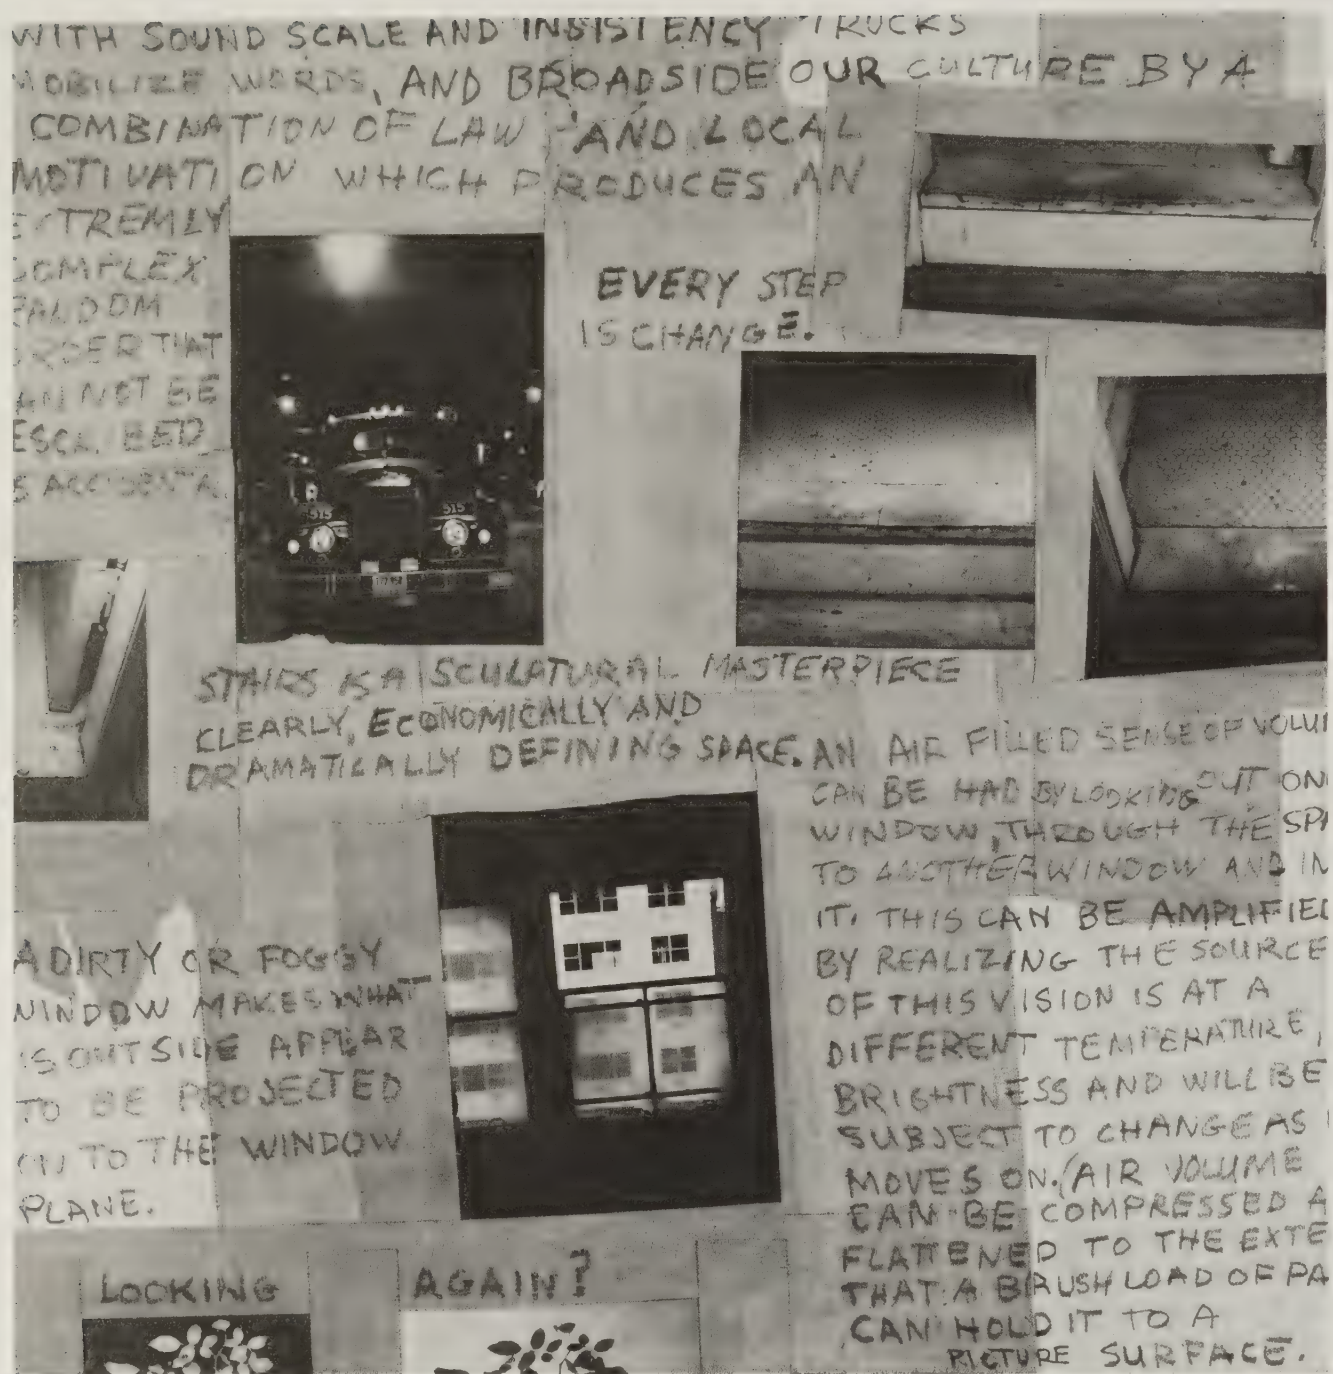 WITH SOUND SCALE AND INSISTENCY TRUCKS
MOBILIZE WORDS, AND BROADSIDE OUR CULTURE BY A
COMBINATION OF LAW AND LOCAL
MOTIVATION WHICH PRODUCES AN
EXTREMLY
COMPLEX
ORDER THAT
AN NOT BE
EVERY STEP
IS CHANGE.
515
515
STAIRS IS A SCULATURAL MASTERPIECE
CLEARLY, ECONOMICALLY AND
DRAMATICALLY DEFINING SPACE.
AN AIR FILLED SENSE OF VOLU
CAN BE HAD BY LOOKING OUT ON
WINDOW, THROUGH THE SPA
TO ANOTHER WINDOW AND IN
IT. THIS CAN BE AMPLIFIED
BY REALIZING THE SOURCE
OF THIS VISION IS AT A
DIFFERENT TEMPERATURE,
BRIGHTNESS AND WILL BE
SUBJECT TO CHANGE AS
MOVES ON. AIR VOLUME
CAN BE COMPRESSED A
FLATTENED TO THE EXTE
THAT A BRUSH LOAD OF PA
CAN HOLD IT TO A
PICTURE SURFACE.
A DIRTY OR FOGGY
WINDOW MAKES WHAT
IS OUTSIDE APPEAR
TO BE PROJECTED
ON TO THE WINDOW
PLANE.
LOOKING AGAIN?